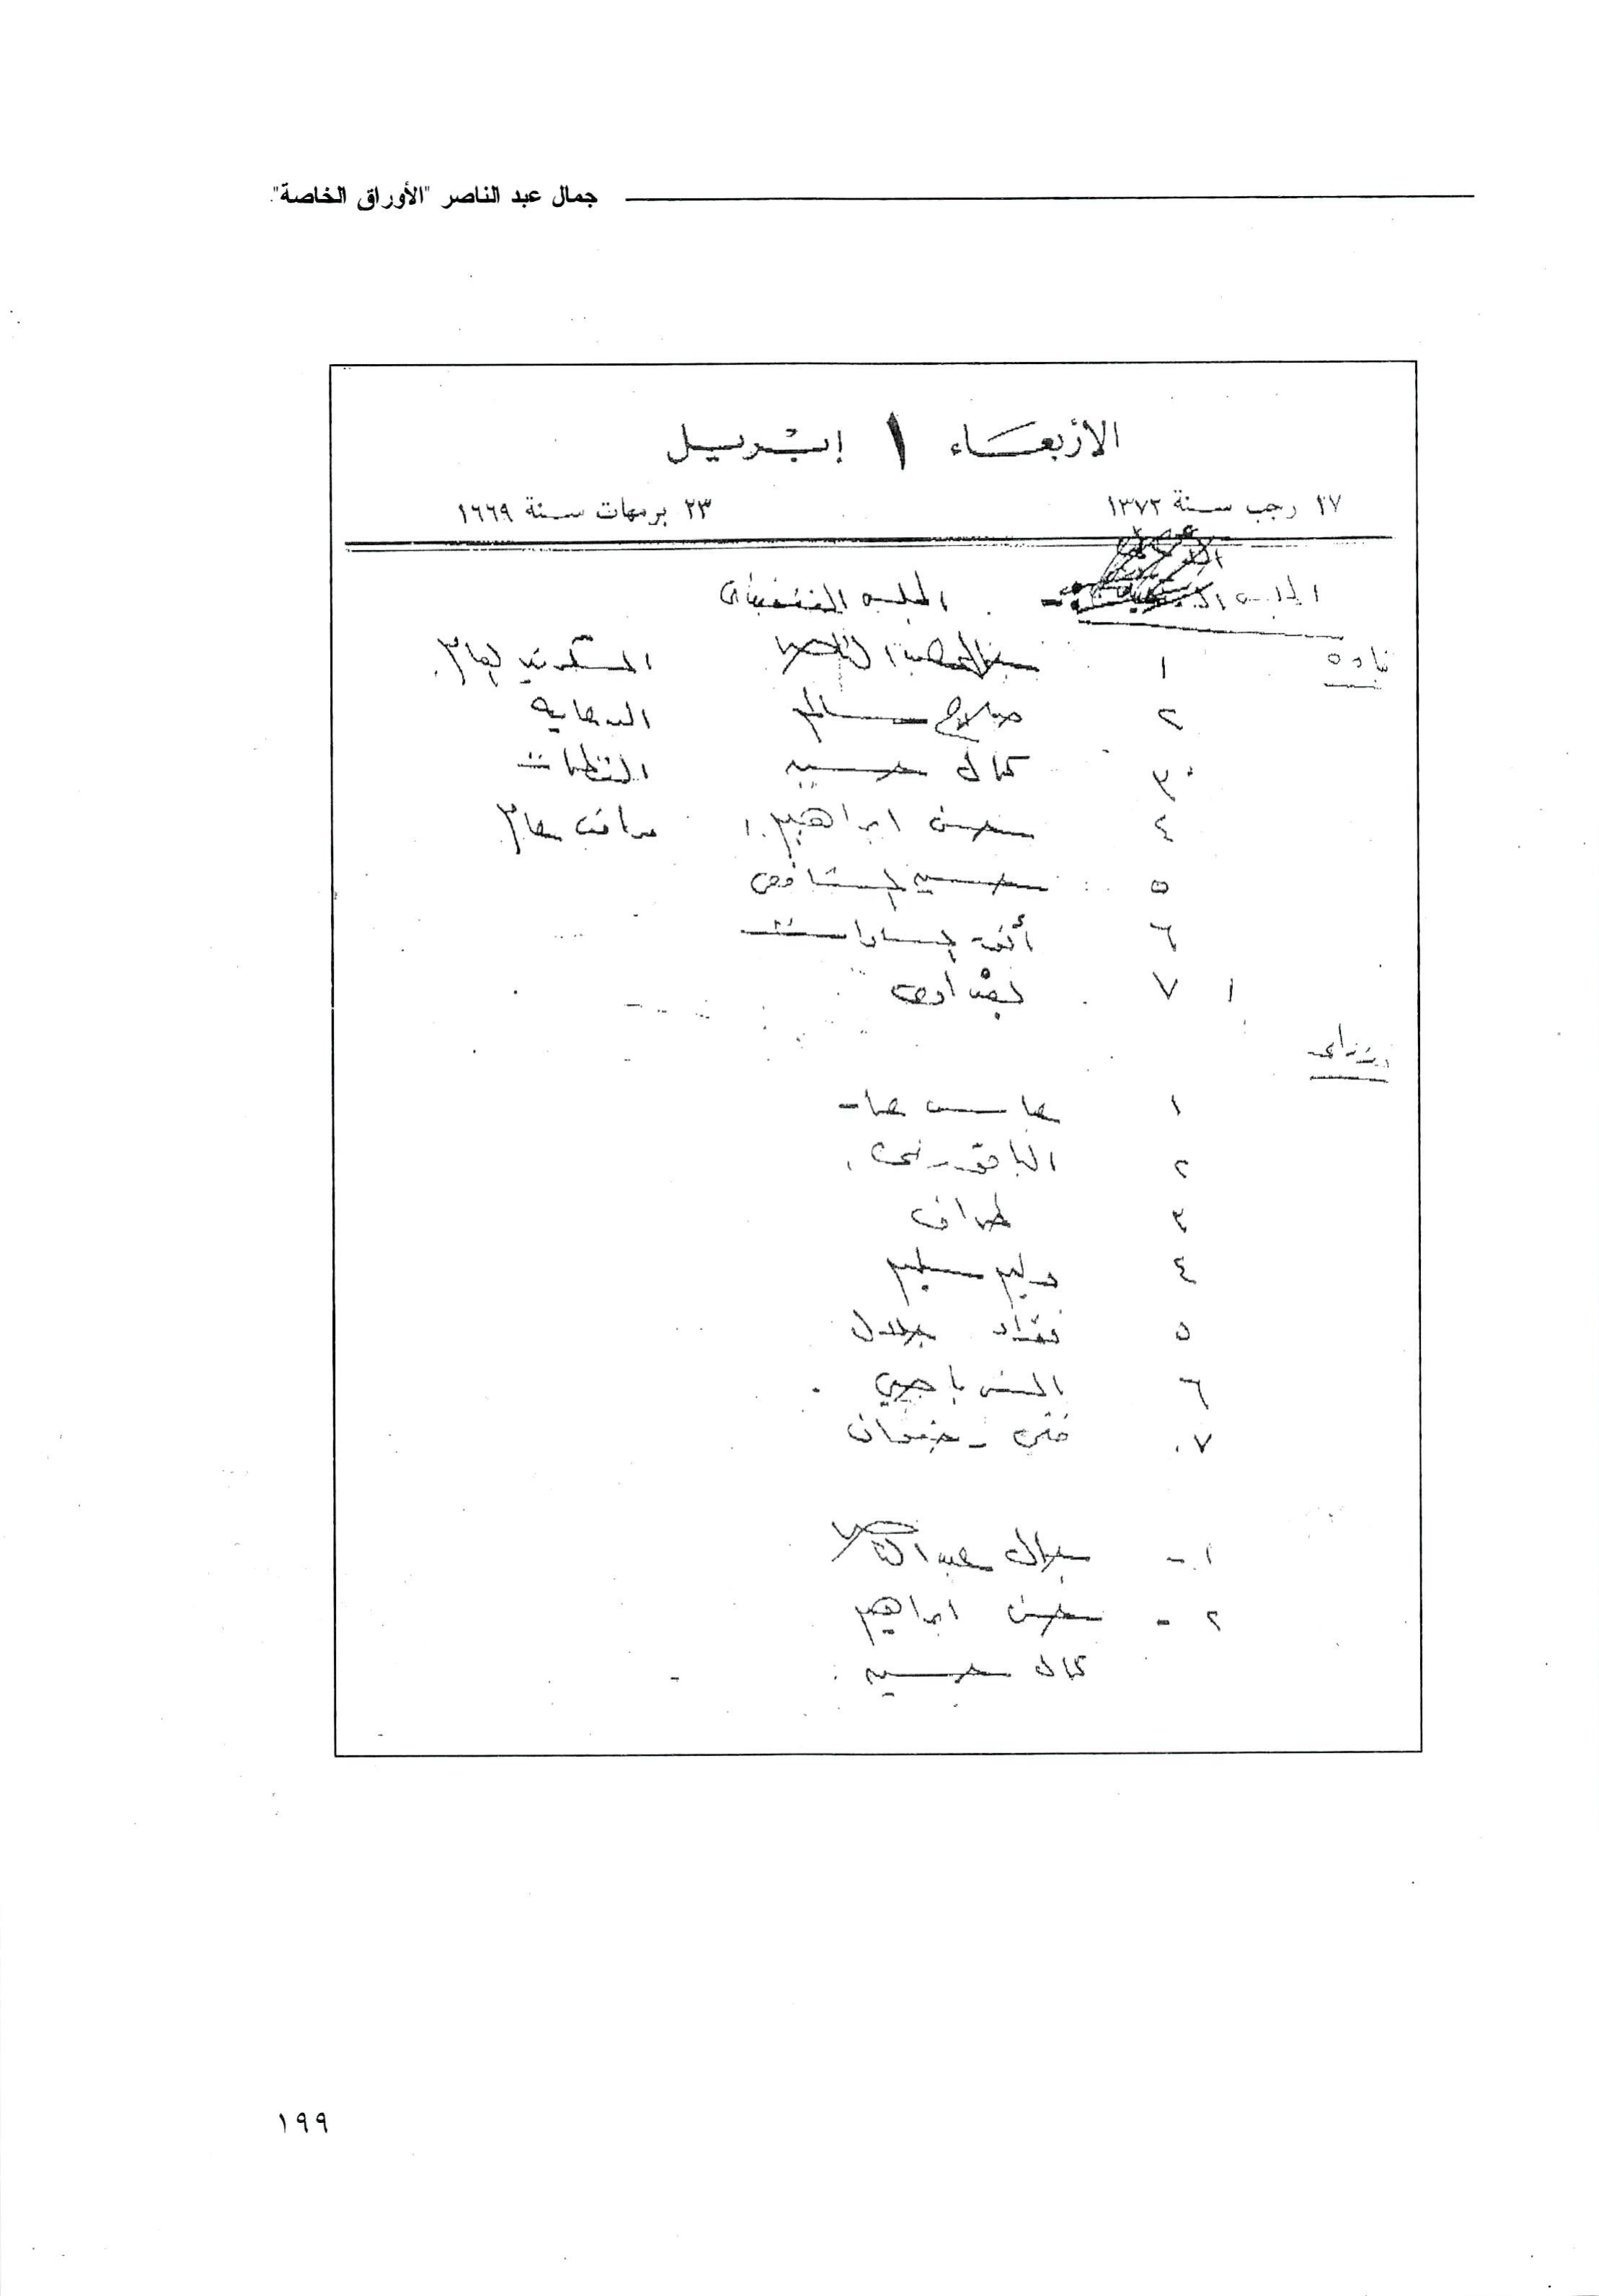 جمال عبد الناصر "الأوراق الخاصة".
الأربعاء ١ إبريل
١٧ رجب سنة ١٣٧٢ ٢٣ برمهات سنة ١٦٦٩
المجلس المجلس التنفيذى
قياده ١ جمال عبد الناصر السكرتير العام
٢ صلاح سالم الدعايه
٣ كمال حسين المنظمات
٤ حسن ابراهيم مراقب عام
٥ حسين الشافعى
٦ أنور السادات
٧ بغدادى
١
وزراء
١ عباس عمار
٢ الباقورى
٣ طراف
٤ وليم سليم
٥ فؤاد جلال
٦ الشرباصى
٧ فتحى رضوان
١ - جمال عبد الناصر
٢ - حسن ابراهيم
كمال حسين
١٩٩